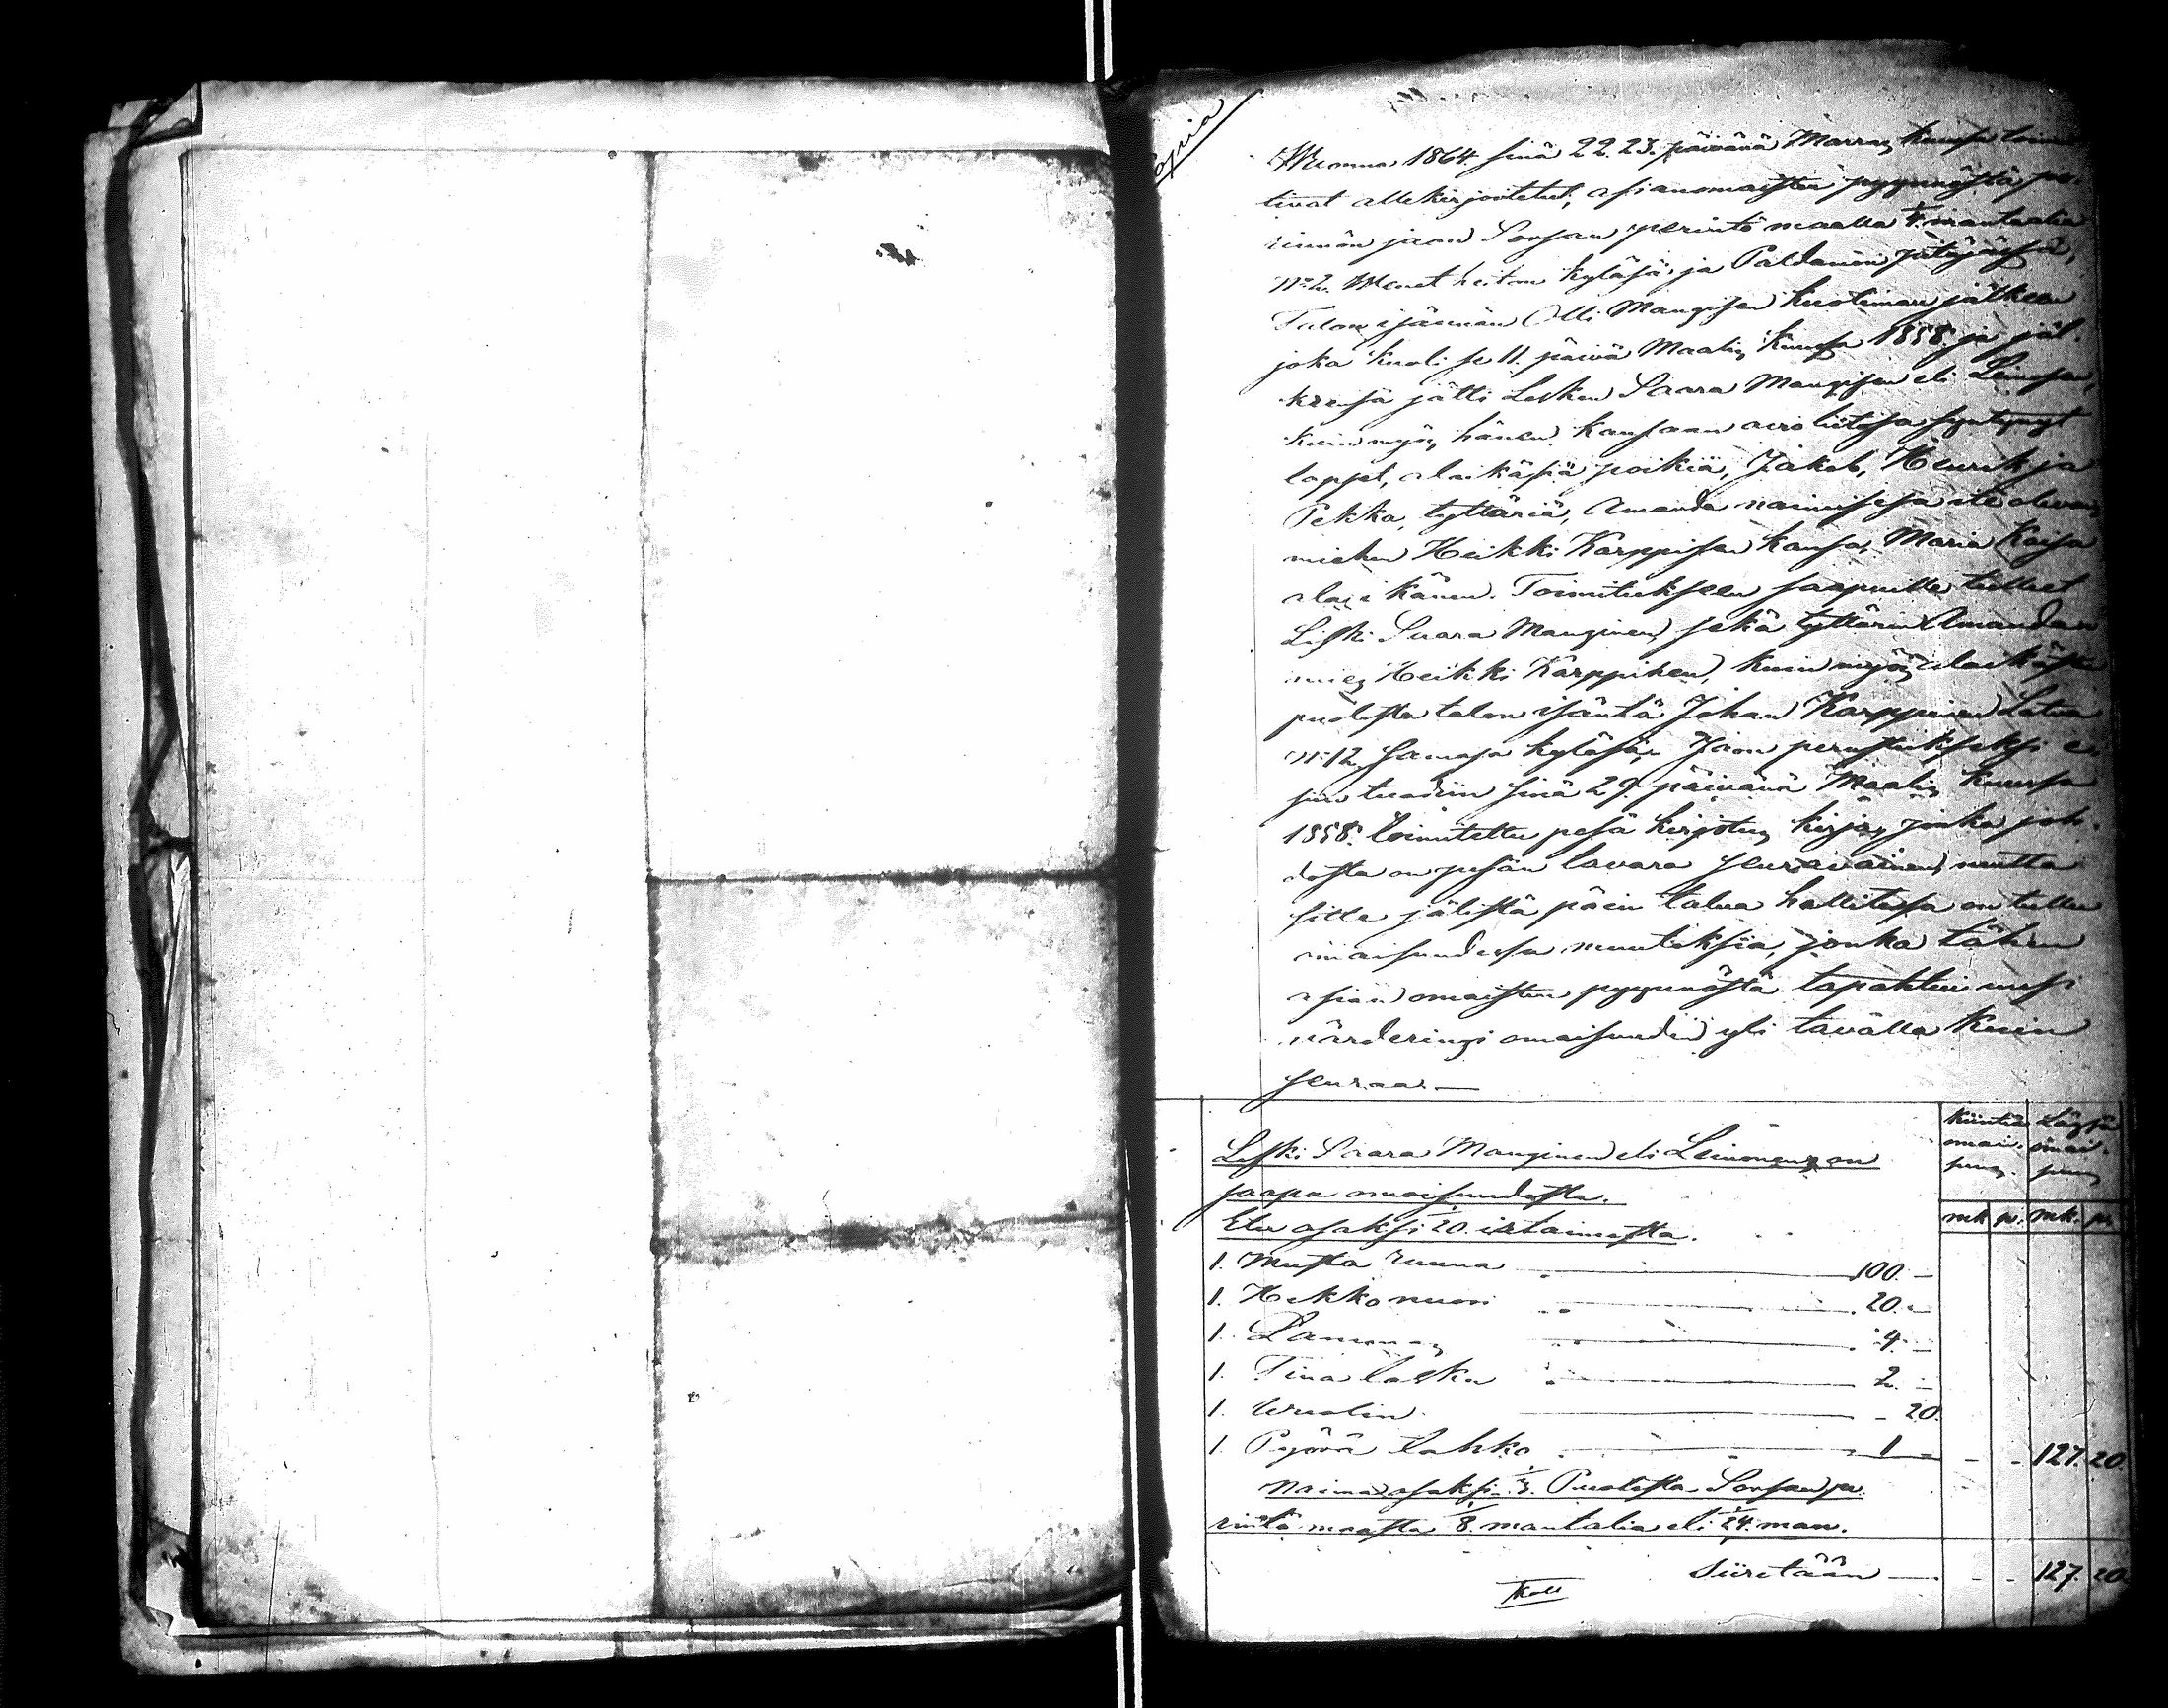 opia
Wuonna 1864 sinä 22. 23. päivänä Marras kuussa toimi
tivat allekirjoitetut, asianomaisten pyynnöstä pe-
rinnön jaon Sorsan perintö maalla mantualia
N:o 2. Wenet heiton kyläsä ja Paldamon pitäjässä,
Talon isännän Olli Mangisen kuoleman jälkeen
joka kuoli se 11. päivä Maalis kuussa 1858. ja jäl-
keensä jätti Lesken Saara Mangisen eli Leinosen,
kuin myös hänen kansaan avioliitosa syntynyt
lapset, alaikäsiä poikia, Jakob, Henrik ja
Pekka, tyttäriä, Amanda naimisesa itä olevas
miehen Heikki Karppisen kansa, Maria Kaisa
alaikänen. Toimitukseen saapuille tulleet
Leski Saara Manginen, sekä tyttären Amandan
mies Heikki Karppinen, kuin myös alaikäsen
puolesta talon isäntä Johan Karppinen Latva
N:12 samasa kyläsä, Jaon perustukseksi e-
siin tuodiin sinä 29. päivänä Maalis kuussa
1858. toimitettu pesä kirjotus kirja, jonka joh-
dosta on pesän tavara seuraavainen, mutta
sitte jälistä päin talua hallitessa on tullu
omaisuudessa muutoksia, jonka tähen
asian omaisten pyynnöstä tapahtui uusi
värderingi omaisuudin yli tavalla kuin
seuraa. —
Leski Saara Manginen eli Leinonens on
saapa omaisuudesta.
Etu osaksi 20. irtaimesta.
Kiintiä omai- suus. Löysä omai- suus
mk. p. mk. p.
1. Musta ruuna 100. —
1. Hekko nuori 20. —
1. Lammas 4. —
1. Tina lasku 2. —
1. Wuolin — 20.
1. Pyörä lahko 1 — 127. 20.
Naima osaksi 1/3. Puolesta Sorsan pe-
rintö maasta 1/8. mantalia eli 1/24. man.
Siiretään — 127. 20.